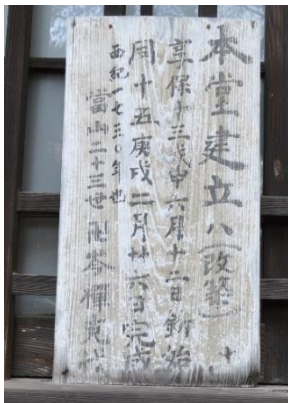 本堂建立ハ(改築)
享保十三戊申六月十二日釿始
同十五庚戌二月廿六日完成
西紀一七三〇年也
當山二十三世